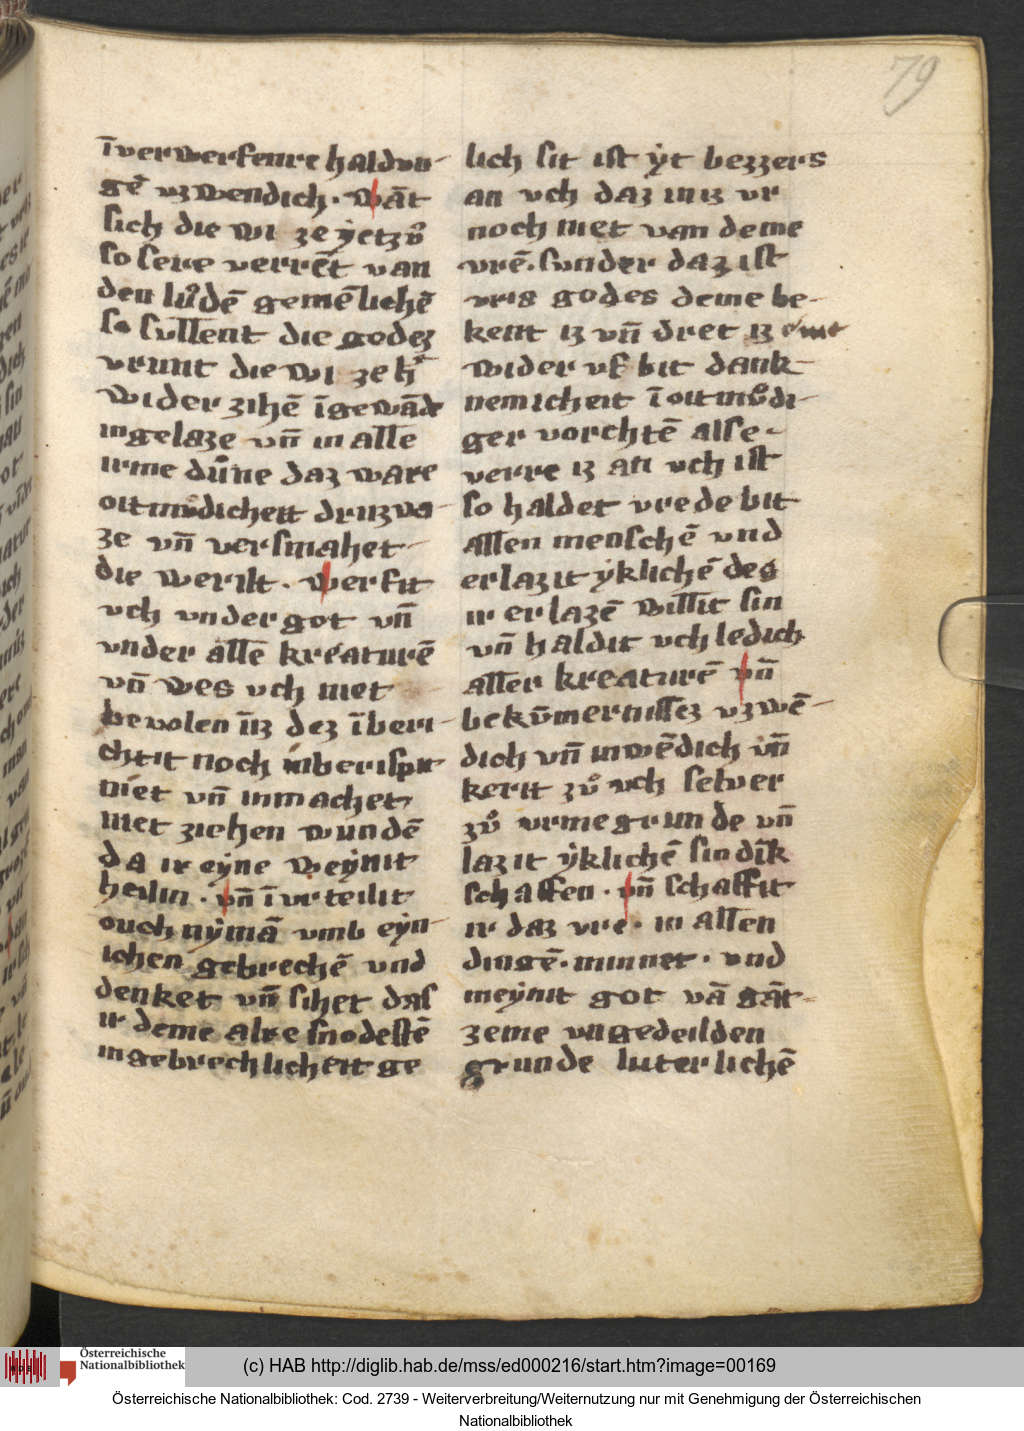 79
ī verwerfenre haldun-
gē uzwendich. wāt
sich die wi ze ẏetzuͦ
so sere verrēt van
den luͦdē gemēlichē
so sullent die godez
vrunt die wi ze h
wider zihē ī gewādē
in gelaze vn̄ in alle
irme duͦne daz ware
oitmuͦdicheit druz va-
ze vn̄ versmahet-
die werilt. wer sit
uch under got vn̄
under allē kreaturē
vn̄ wes uch niet
bevolen īiz dez ī beri-
chtit noch inberispit
niet vn̄ inmachet
niet ziehen wundē
da ir eẏne weẏnit
heilin. vn̄ ī urteilit
ouch nẏmā umb eẏn-
ichen gebrechē und
denket vn̄ sihet das
ir deme alre snodestē
in gebrechlicheit ge
lich sit ist ẏt bezzers
an uch daz iniz ur
noch niet van deme
vrē. sunder daz ist
vris godes deme be-
kent iz vn̄ dret iz eīme
wider uf bit dank-
nemicheit ī oitmuͦdi-
ger vorchtē alse-
verre iz an uch ist
so haldet vrede bit
allen menschē und
erlazit ẏklichē des
ir erlazē willit sin
vn̄ haldit uch ledich
aller kreaturē vn̄
bekūmernissez uzwē-
dich vn̄ inwēdich vn̄
kerit zuͦ uch selver
zuͦ urme grunde vn̄
lazit ẏklichē sin dīk
schaffen. vn̄ schaffit
ir daz vre. in allen
dingē. minnet. und
meẏnit got vā gāt-
zeme ungedeilden
grunde luterlichē
Österreichische
Nationalbibliothek
(c) HAB http://diglib.hab.de/mss/ed000216/start.htm?image=00169
Österreichische Nationalbibliothek: Cod. 2739 - Weiterverbreitung/Weiternutzung nur mit Genehmigung der Österreichischen
Nationalbibliothek